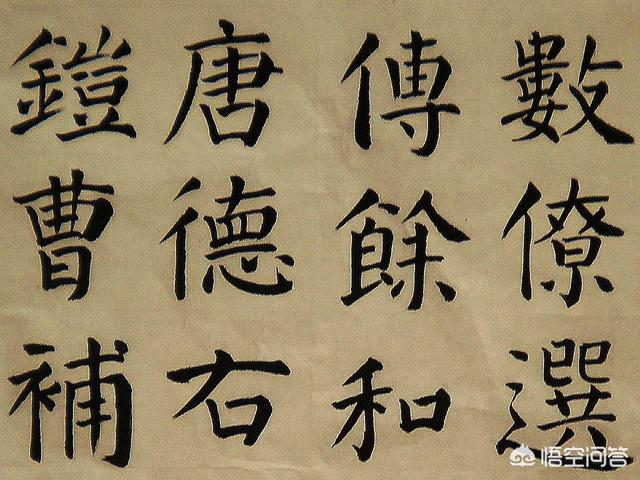 數僚選
傳餘和
唐德右
鎧曹補
悟空问答